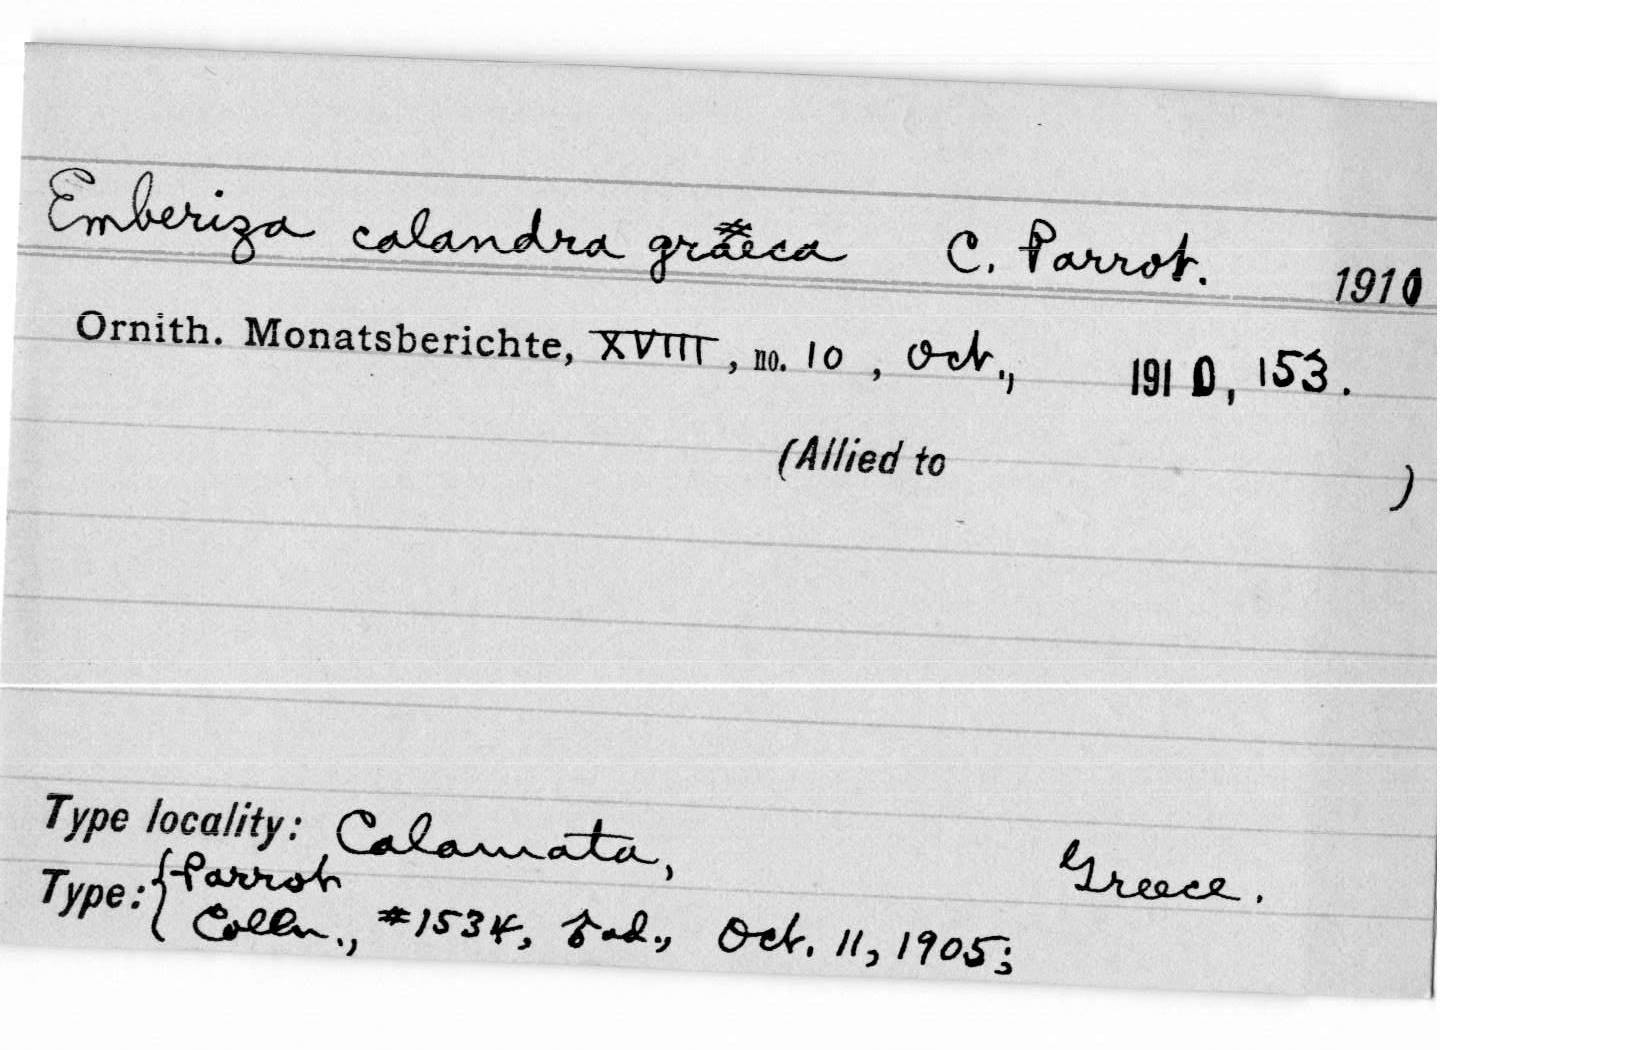 Emberiza calandra graeca C. Parrot. 1910
Ornith. Monatsberichte, XVIII, no. 10, Oct., 1910, 153.
(Allied to )
Type locality: Calamata, Greece.
Type: { Parrot
Colln., #1534, ad., Oct. 11, 1905;